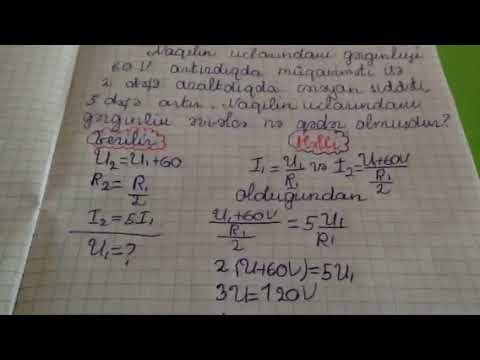 Naqilin uclarındakı gərginliyi
60 V artırdıqda müqaviməti isə
2 dəfə azaltdıqda cərəyan şiddəti
5 dəfə artır. Naqilin uclarındakı
gərginlik əvvəlcə nə qədər olmuşdur?
Verilir
U₂=U₁+60
R₂=R₁/2
I₂=5I₁
U₁=?
Həlli
I₁=U₁/R₁ və I₂=(U+60V)/(R₁/2)
olduğundan
(U₁+60V)/(R₁/2)=5U₁/R₁
2(U+60V)=5U₁
3U=120V